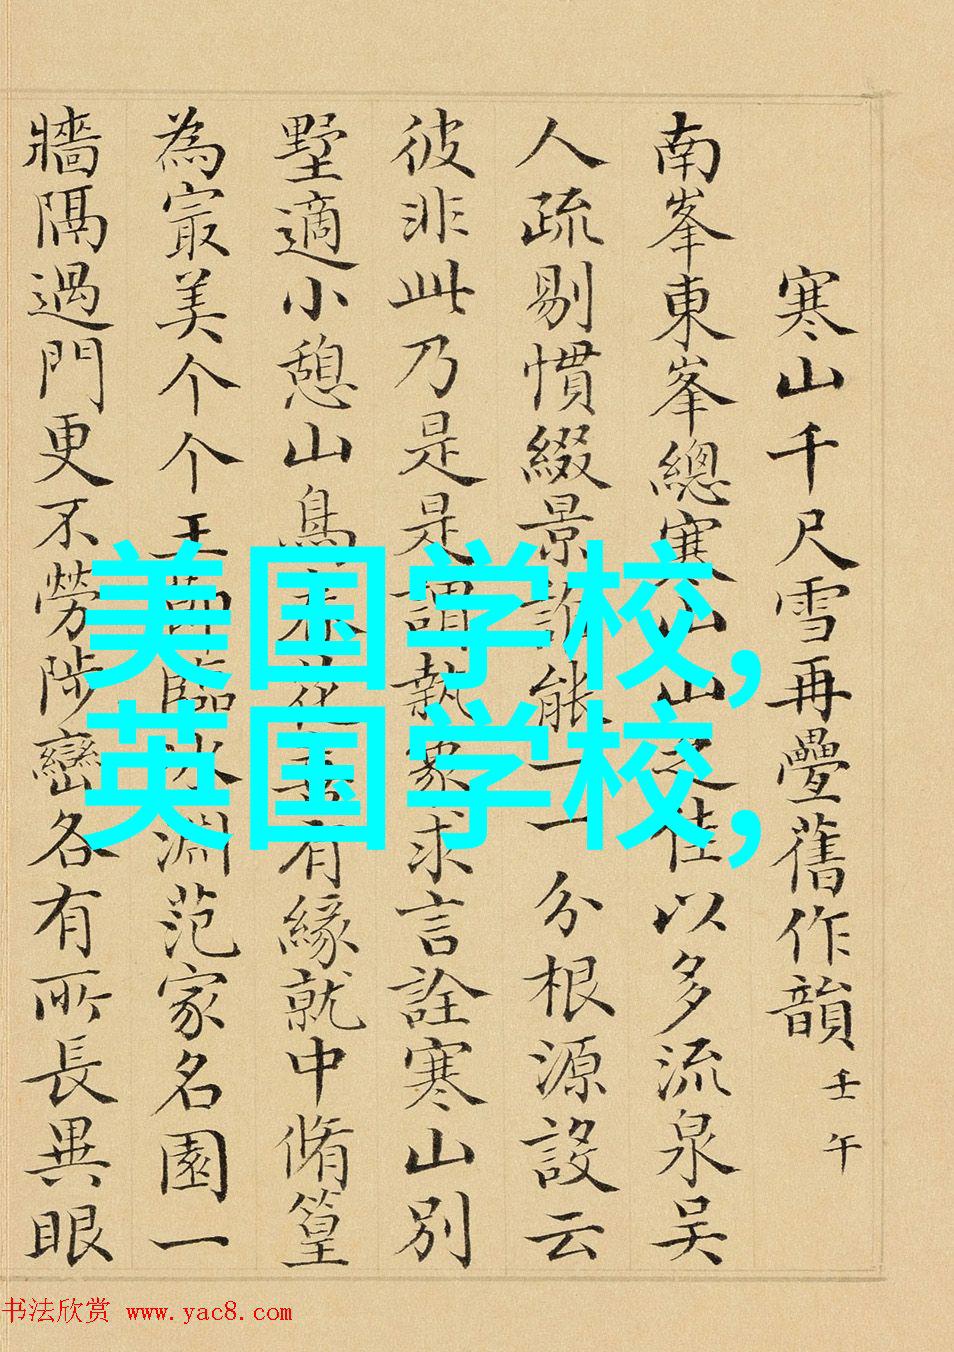 寒山千尺雪再疊舊作韻 壬午
南峯東峯總寒山山之佳以多流泉吴
人疏剔慣綴景詎能一一分根源設云
彼非此乃是是謂執象求言詮寒山別
墅適小憩山鳥有緣就中脩篁
為寂美个个玉臨冰淵范家名園一
牆隔過門更不勞陟巒各有所長異眼
美国学校,
英国学校,
书法欣赏 www.yac8.com